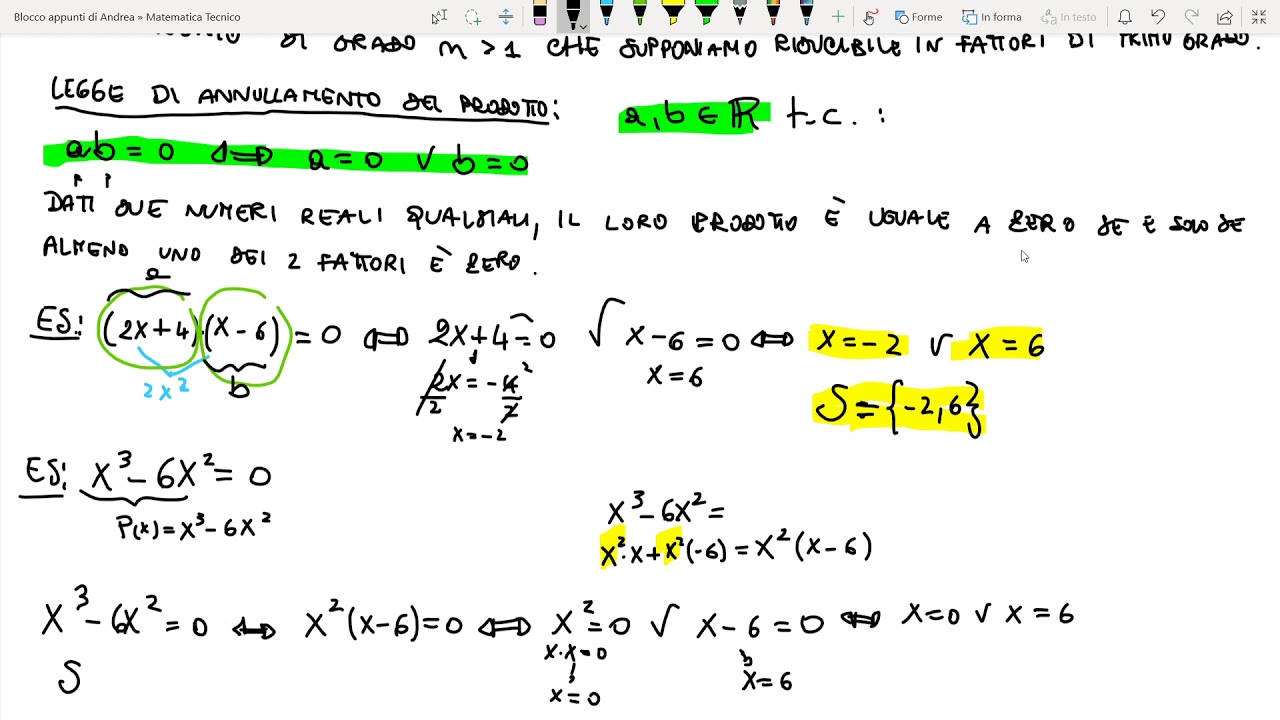 Blocco appunti di Andrea » Matematica Tecnico
Forme In forma In testo
DI GRADO n > 1 CHE SUPPONIAMO RIDUCIBILE IN FATTORI DI PRIMO GRADO.
LEGGE DI ANNULLAMENTO DEL PRODOTTO: a, b ∈ ℝ t.c. :
ab = 0 ⇔ a = 0 ∨ b = 0
DATI DUE NUMERI REALI QUALSIASI, IL LORO PRODOTTO È UGUALE A ZERO SE E SOLO SE
ALMENO UNO DEI 2 FATTORI È ZERO.
a
ES: (2x+4)·(x-6) = 0 ⇔ 2x+4=0 ∨ x-6=0 ⇔ x=-2 ∨ x=6
2x² b
2x/2 = -4/2 2
x=6
x=-2
S={-2,6}
ES: x³-6x²=0
P(x)=x³-6x²
x³-6x²=
x²·x+x²(-6)=x²(x-6)
x³-6x²=0 ⇔ x²(x-6)=0 ⇔ x²=0 ∨ x-6=0 ⇔ x=0 ∨ x=6
x·x=0
x=0
x=6
S